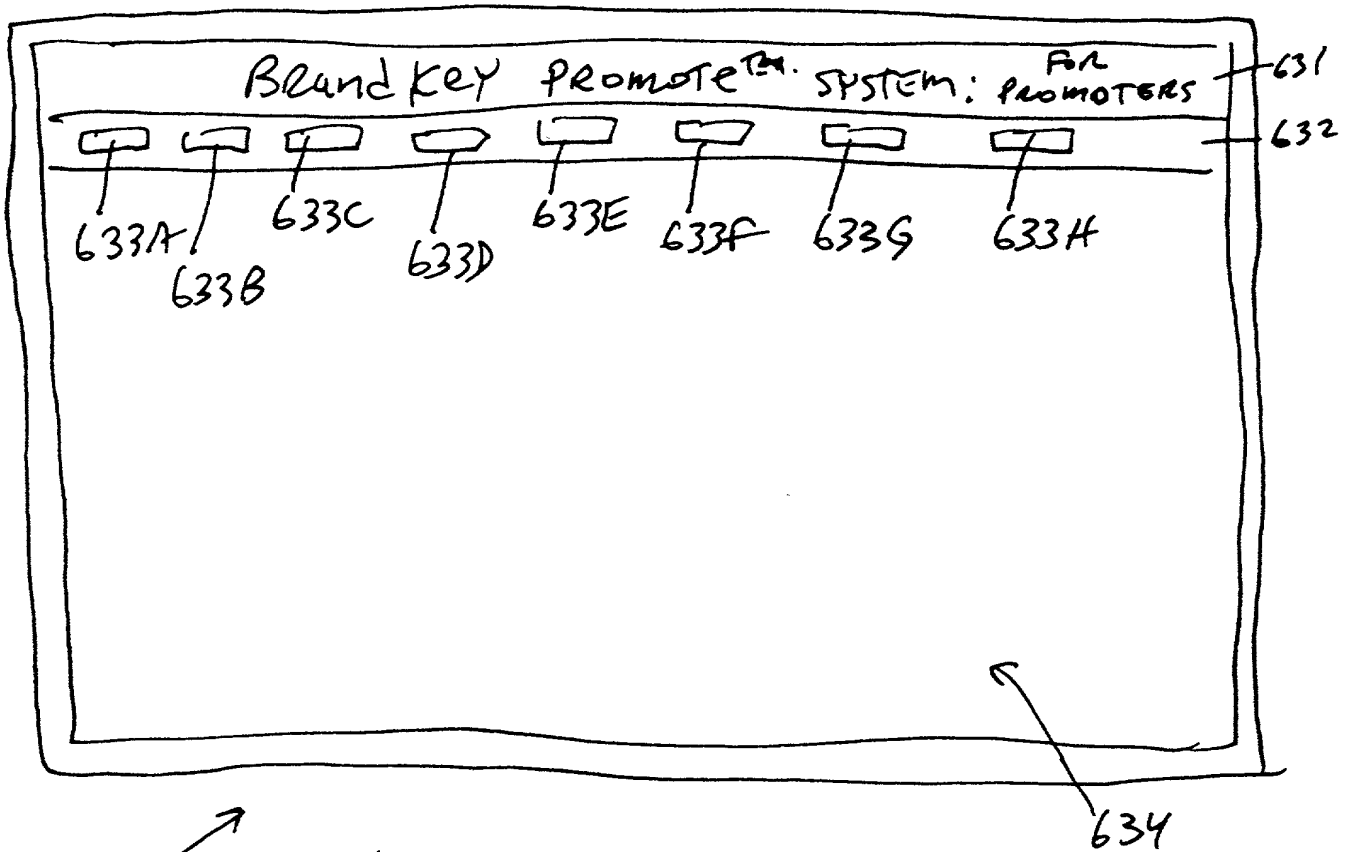 BrandKey PRomoTe TM. SYSTEM: FOR PROMOTERS
631
632
633A 633B 633C 633D 633E 633F 633G 633H
634